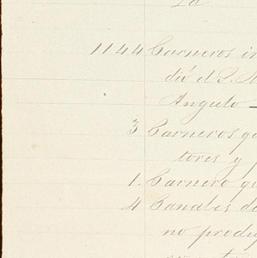 1144 Carneros in
dió el S. 
Angulo
3 Carneros q
tores y
1. Carnero q
4 Canales d
no produj